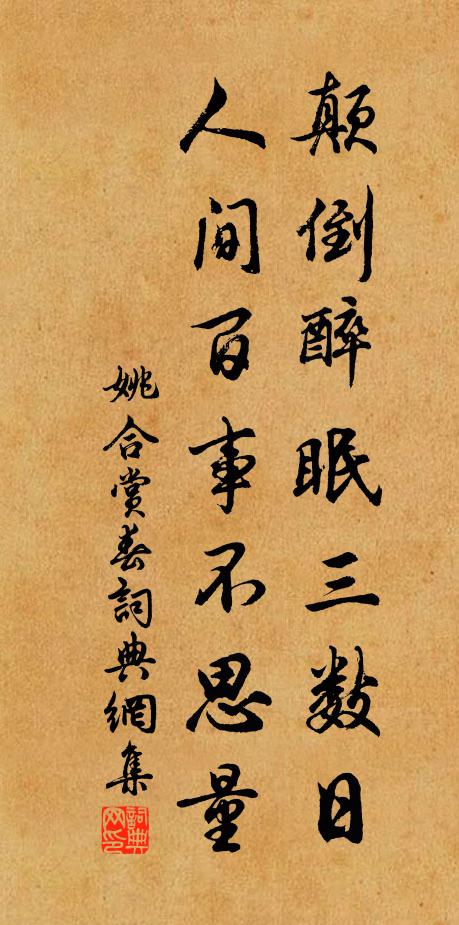 颠倒醉眠三数日
人间百事不思量
姚合赏春詞典網集
詞典网印